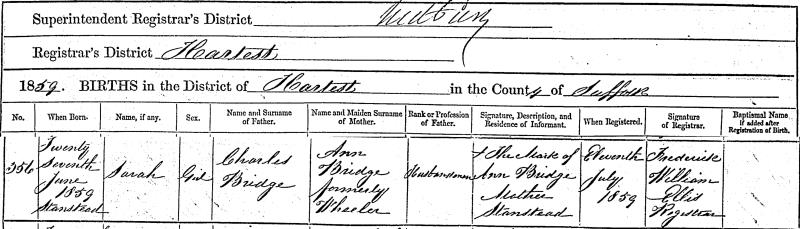 Superintendent Registrar's District Sudbury
Registrar's District Hartest
1859. BIRTHS in the District of Hartest in the County of Suffolk
No. When Born. Name, if any. Sex. Name and Surname of Father. Name and Maiden Surname of Mother. Rank or Profession of Father. Signature, Description, and Residence of Informant. When Registered. Signature of Registrar. Baptismal Name if added after Registration of Birth.
356
Twenty
Seventh
June
1859
Stanstead
Sarah
Girl
Charles
Bridge
Ann
Bridge
formerly
Wheeler
Husbandman
X The Mark of
Ann Bridge
Mother
Stanstead
Eleventh
July
1859
Frederick
William
Ellis
Registrar